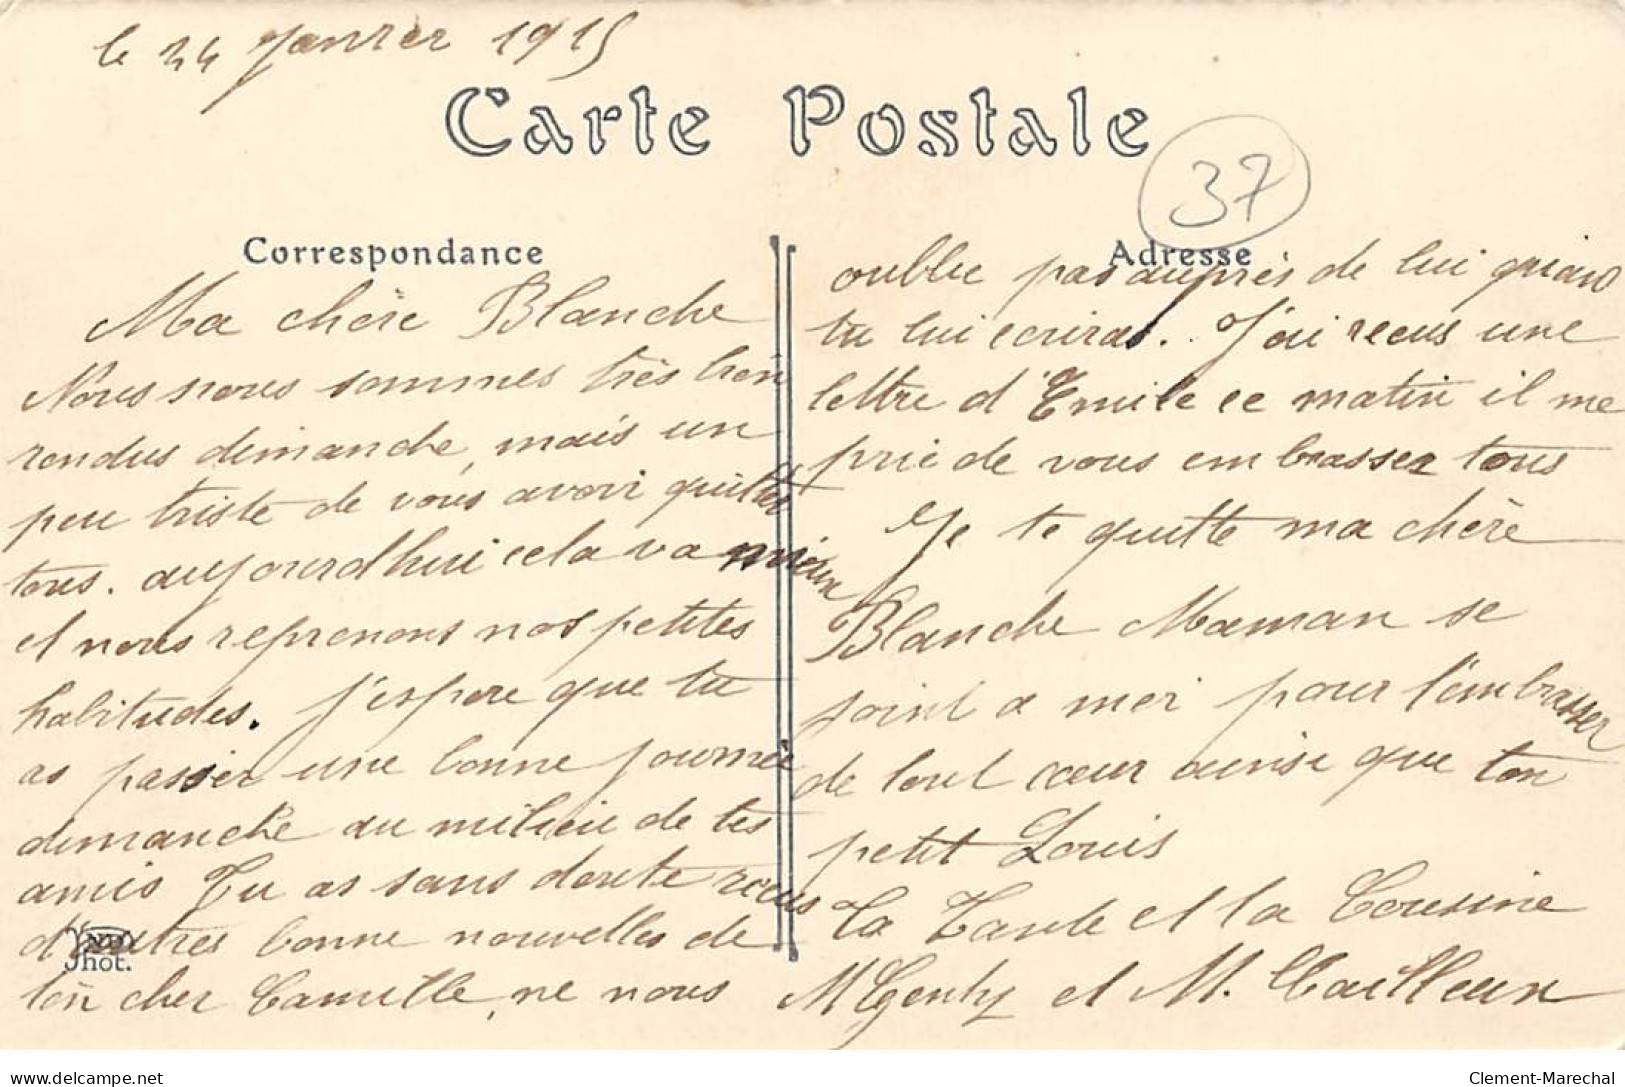 le 24 Janvier 1915
Carte Postale
37
Correspondance
Ma chère Blanche
Nous nous sommes très bien
rendus dimanche, mais un
peu triste de vous avoir quitter
tous. aujourdhui cela va mieux
et nous reprenons nos petites
habitudes. j'espere que tu
as passer une bonne journée
dimanche au milieu de tes
amis Tu as sans doute recus
d'autres bonne nouvelles de
ton cher Camille, ne nous
ND Phot.
Adresse
oublie pas auprès de lui quand
tu lui ecriras. J'ai recus une
lettre d'Emile ce matin il me
prie de vous embrasser tous
Je te quitte ma chère
Blanche Maman se
joint a moi pour t'embrasser
de tout cœur ainsi que ton
petit Louis
La Tante et la Cousine
M Genty et M. Cailleux
delcampe.net
Clement-Marechal